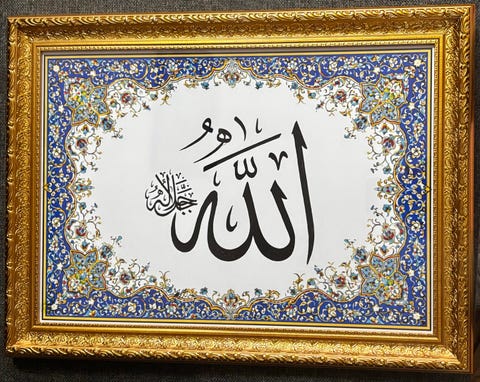 هُو
اللّٰه
جَلَّ جلاله